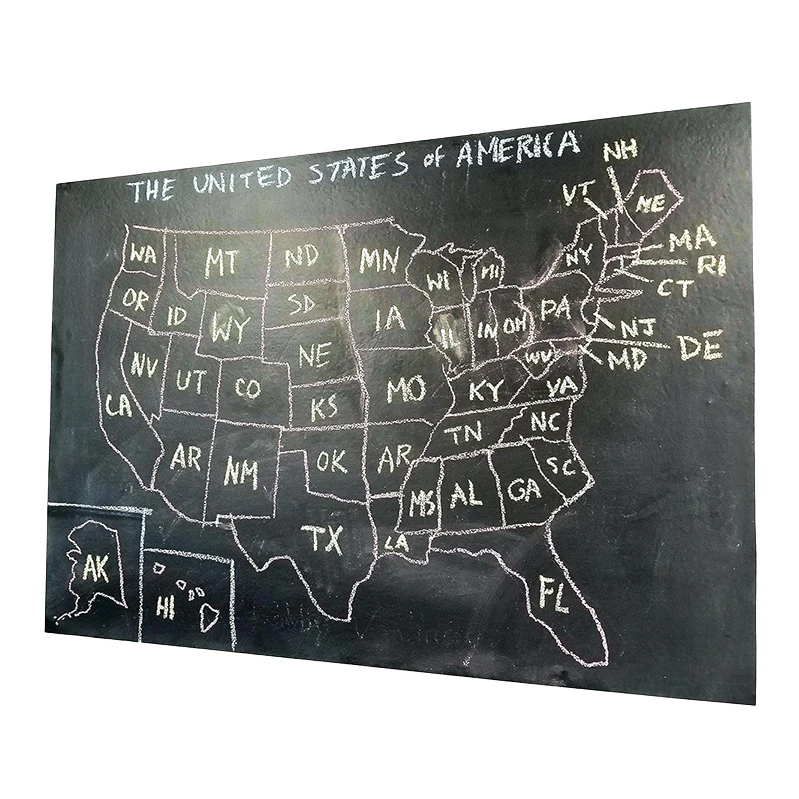 THE UNITED STATES of AMERICA
NH
VT
NE
WA
MT
ND
MN
NY
MA
RI
WI
MI
CT
OR
ID
SD
IA
PA
WY
IL
IN
OH
NJ
DE
NE
WV
MD
NV
UT
CO
MO
KY
VA
CA
KS
TN
NC
AR
NM
OK
AR
SC
MS
AL
GA
TX
LA
AK
HI
FL